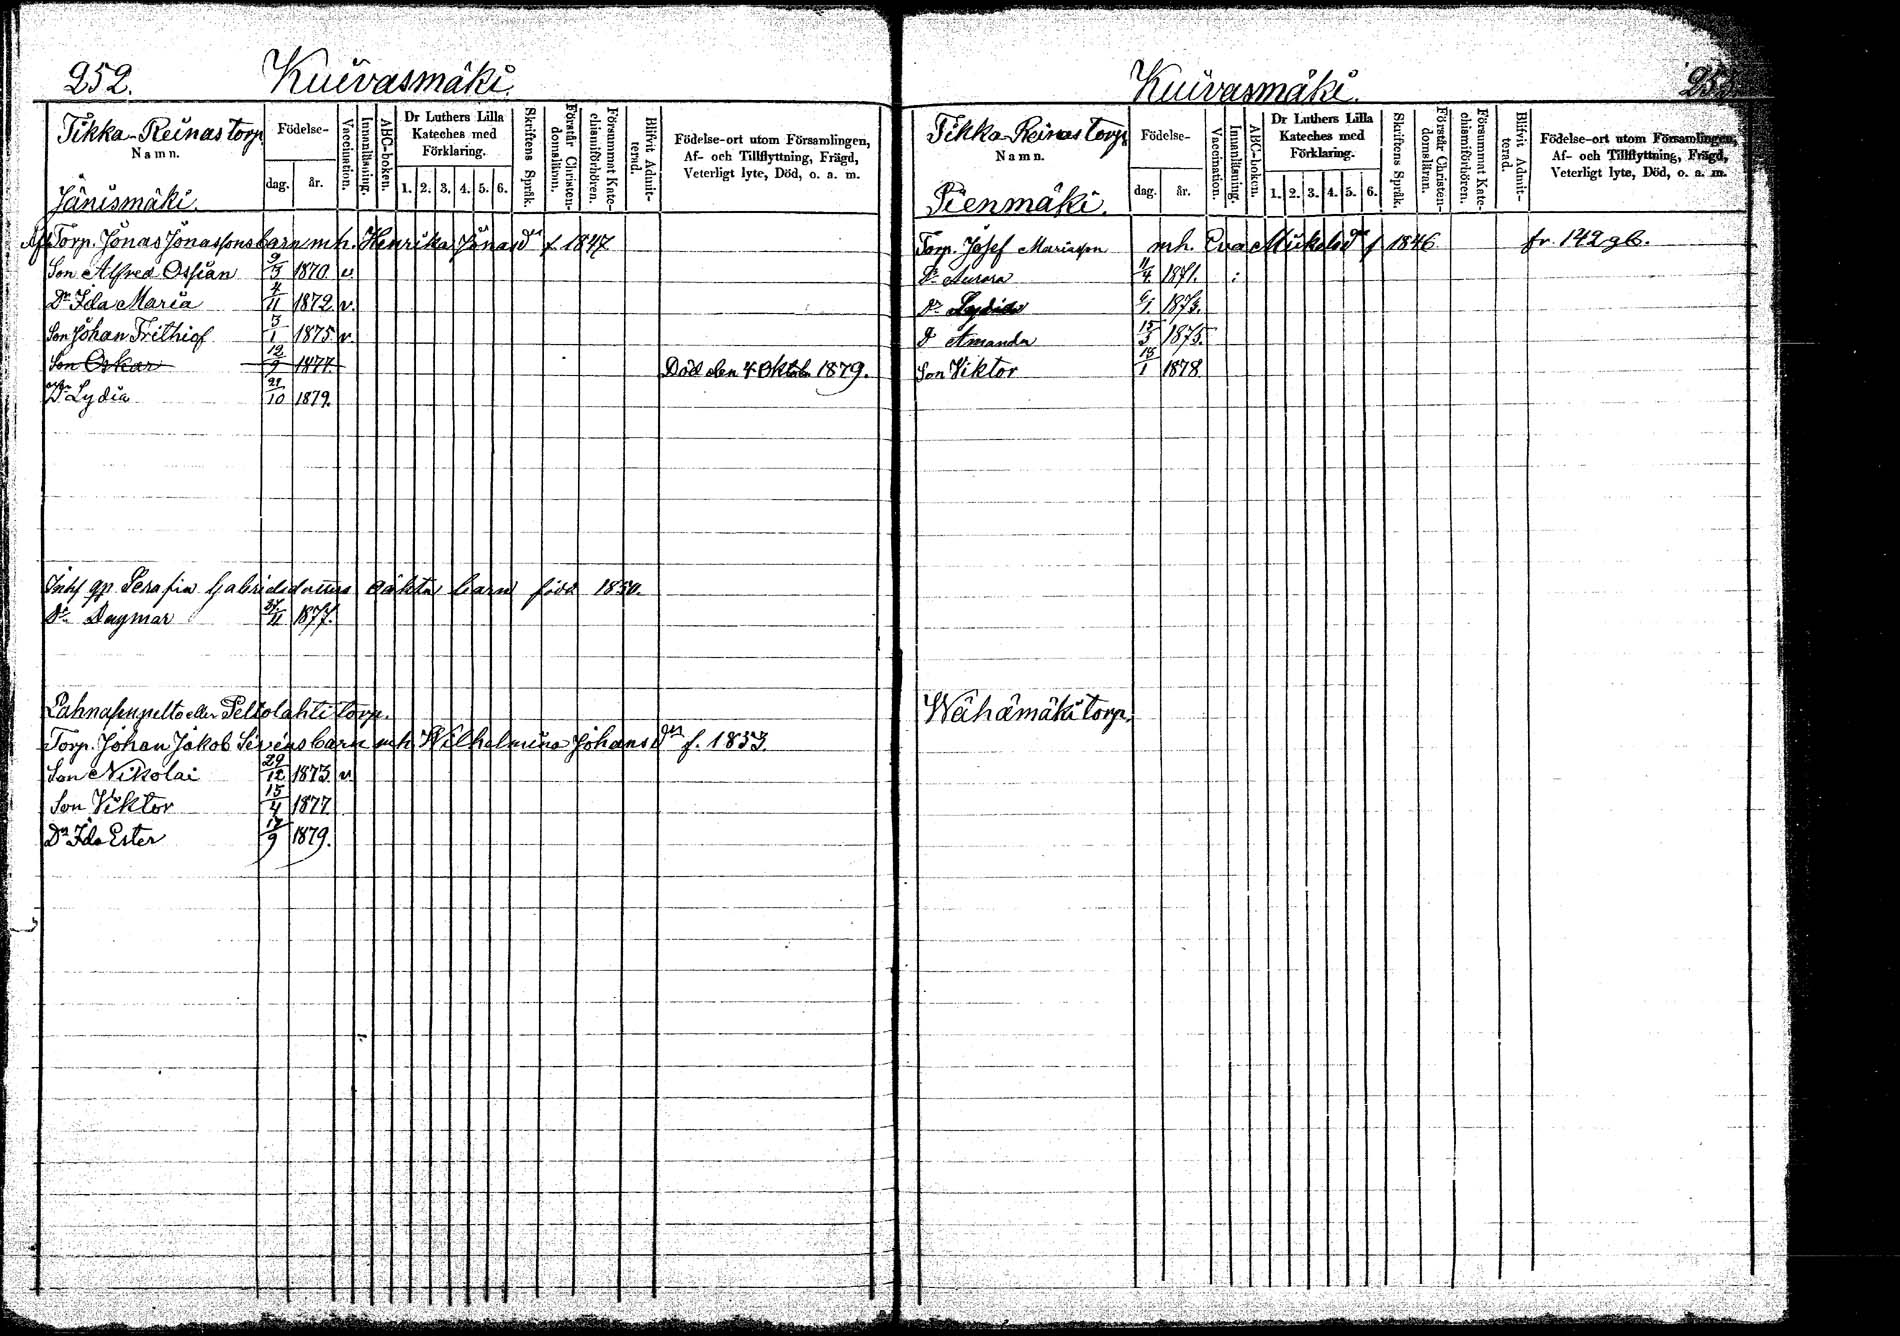 252.
Kuivasmäki.
Tikka-Reinas torp
Namn.
Jänismäki.
Födelse-
dag.
år.
Vaccination.
Innanläsning.
ABC-boken.
Dr Luthers Lilla
Kateches med
Förklaring.
1. 2. 3. 4. 5. 6.
Skriftens Språk.
Förstår Christen-
domsläran.
Försummat Kate-
chismiförhören.
Blifvit Admit-
terad.
Födelse-ort utom Församlingen,
Af- och Tillflyttning, Frägd,
Veterligt lyte, Död, o. a. m.
Afl Torp. Jonas Jonassons barn m.h. Henrika Jonasdr f. 1847
Son Alfred Ossian 9/3 1870. v.
Dr Ida Maria 4/11 1872. v.
Son Johan Frithiof 3/1 1875 v.
Son Oskar 12/9 1877. Död den 4 Oktober 1879.
Dr Lydia 21/10 1879.
Inh. qp. Serafia Gabrielsdotters oäkta barn född 1850.
Dr Dagmar /11 1877.
eller Peltolahti torp.
Torp. Johan Jakob barn m.h. Wilhelmina Johansdr f. 1853.
Son Nikolai 29/12 1873 v
Son Viktor 15/4 1877
Dr Ida Ester 17/9 1879.
Kuivasmäki.
253.
Tikka-Reinas torp
Namn.
Pienmäki.
Födelse-
dag.
år.
Vaccination.
Innanläsning.
ABC-boken.
Dr Luthers Lilla
Kateches med
Förklaring.
1. 2. 3. 4. 5. 6.
Skriftens Språk.
Förstår Christen-
domsläran.
Försummat Kate-
chismiförhören.
Blifvit Admit-
terad.
Födelse-ort utom Församlingen,
Af- och Tillflyttning, Frägd,
Veterligt lyte, Död, o. a. m.
Torp. Josef Mariasson m.h. Eva Mickelsdr f 1846 fr. 142 gb.
Dr Aurora 11/4 1871.
Dr Lydia 6/1. 1873.
D Amanda 15/3 1875.
Son Viktor 18/1 1878
Wähämäki torp.